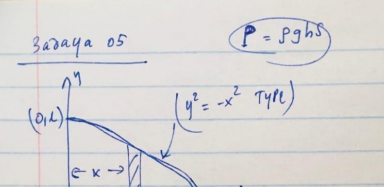 Задача 05
P = ρghS
y
(y² = -x² TYPE)
(0,L)
← x →